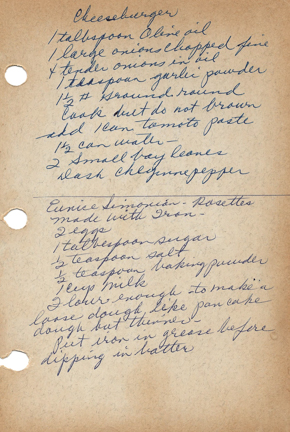 Cheeseburger
1 talbspoon Olive oil
1 large onions chopped fine
& tender onions in oil
1 teaspoon garlic powder
1½ # ground round
Cook but do not brown
add 1 can tomato paste
1½ can water —
2 Small bay leaves
Dash cheyenne pepper
Eunice Simonian - Rosettes
made with Iron -
2 eggs
1 talbespoon sugar
½ teaspoon salt
½ teaspoon baking powder
1 cup milk
Flour enough to make a
loose dough like pancake
dough but thinner -
Put iron in grease before
dipping in batter